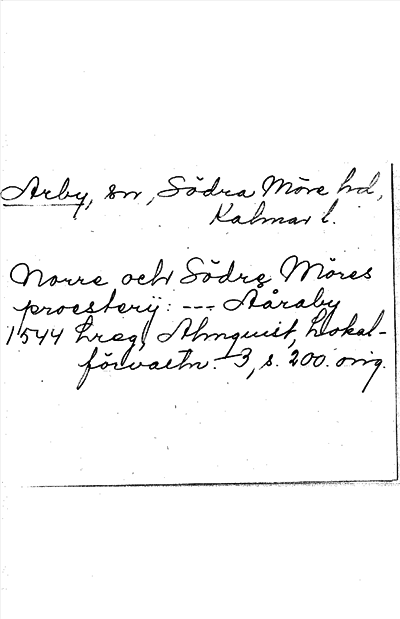 Arby, sn, Södra Möre hd,
Kalmar l.
Norre och Södre Möres
proesterij: --- Aåraby
1544 Lreg, Almquist, Lokal-
förvaltn. 3, s. 200. orig.